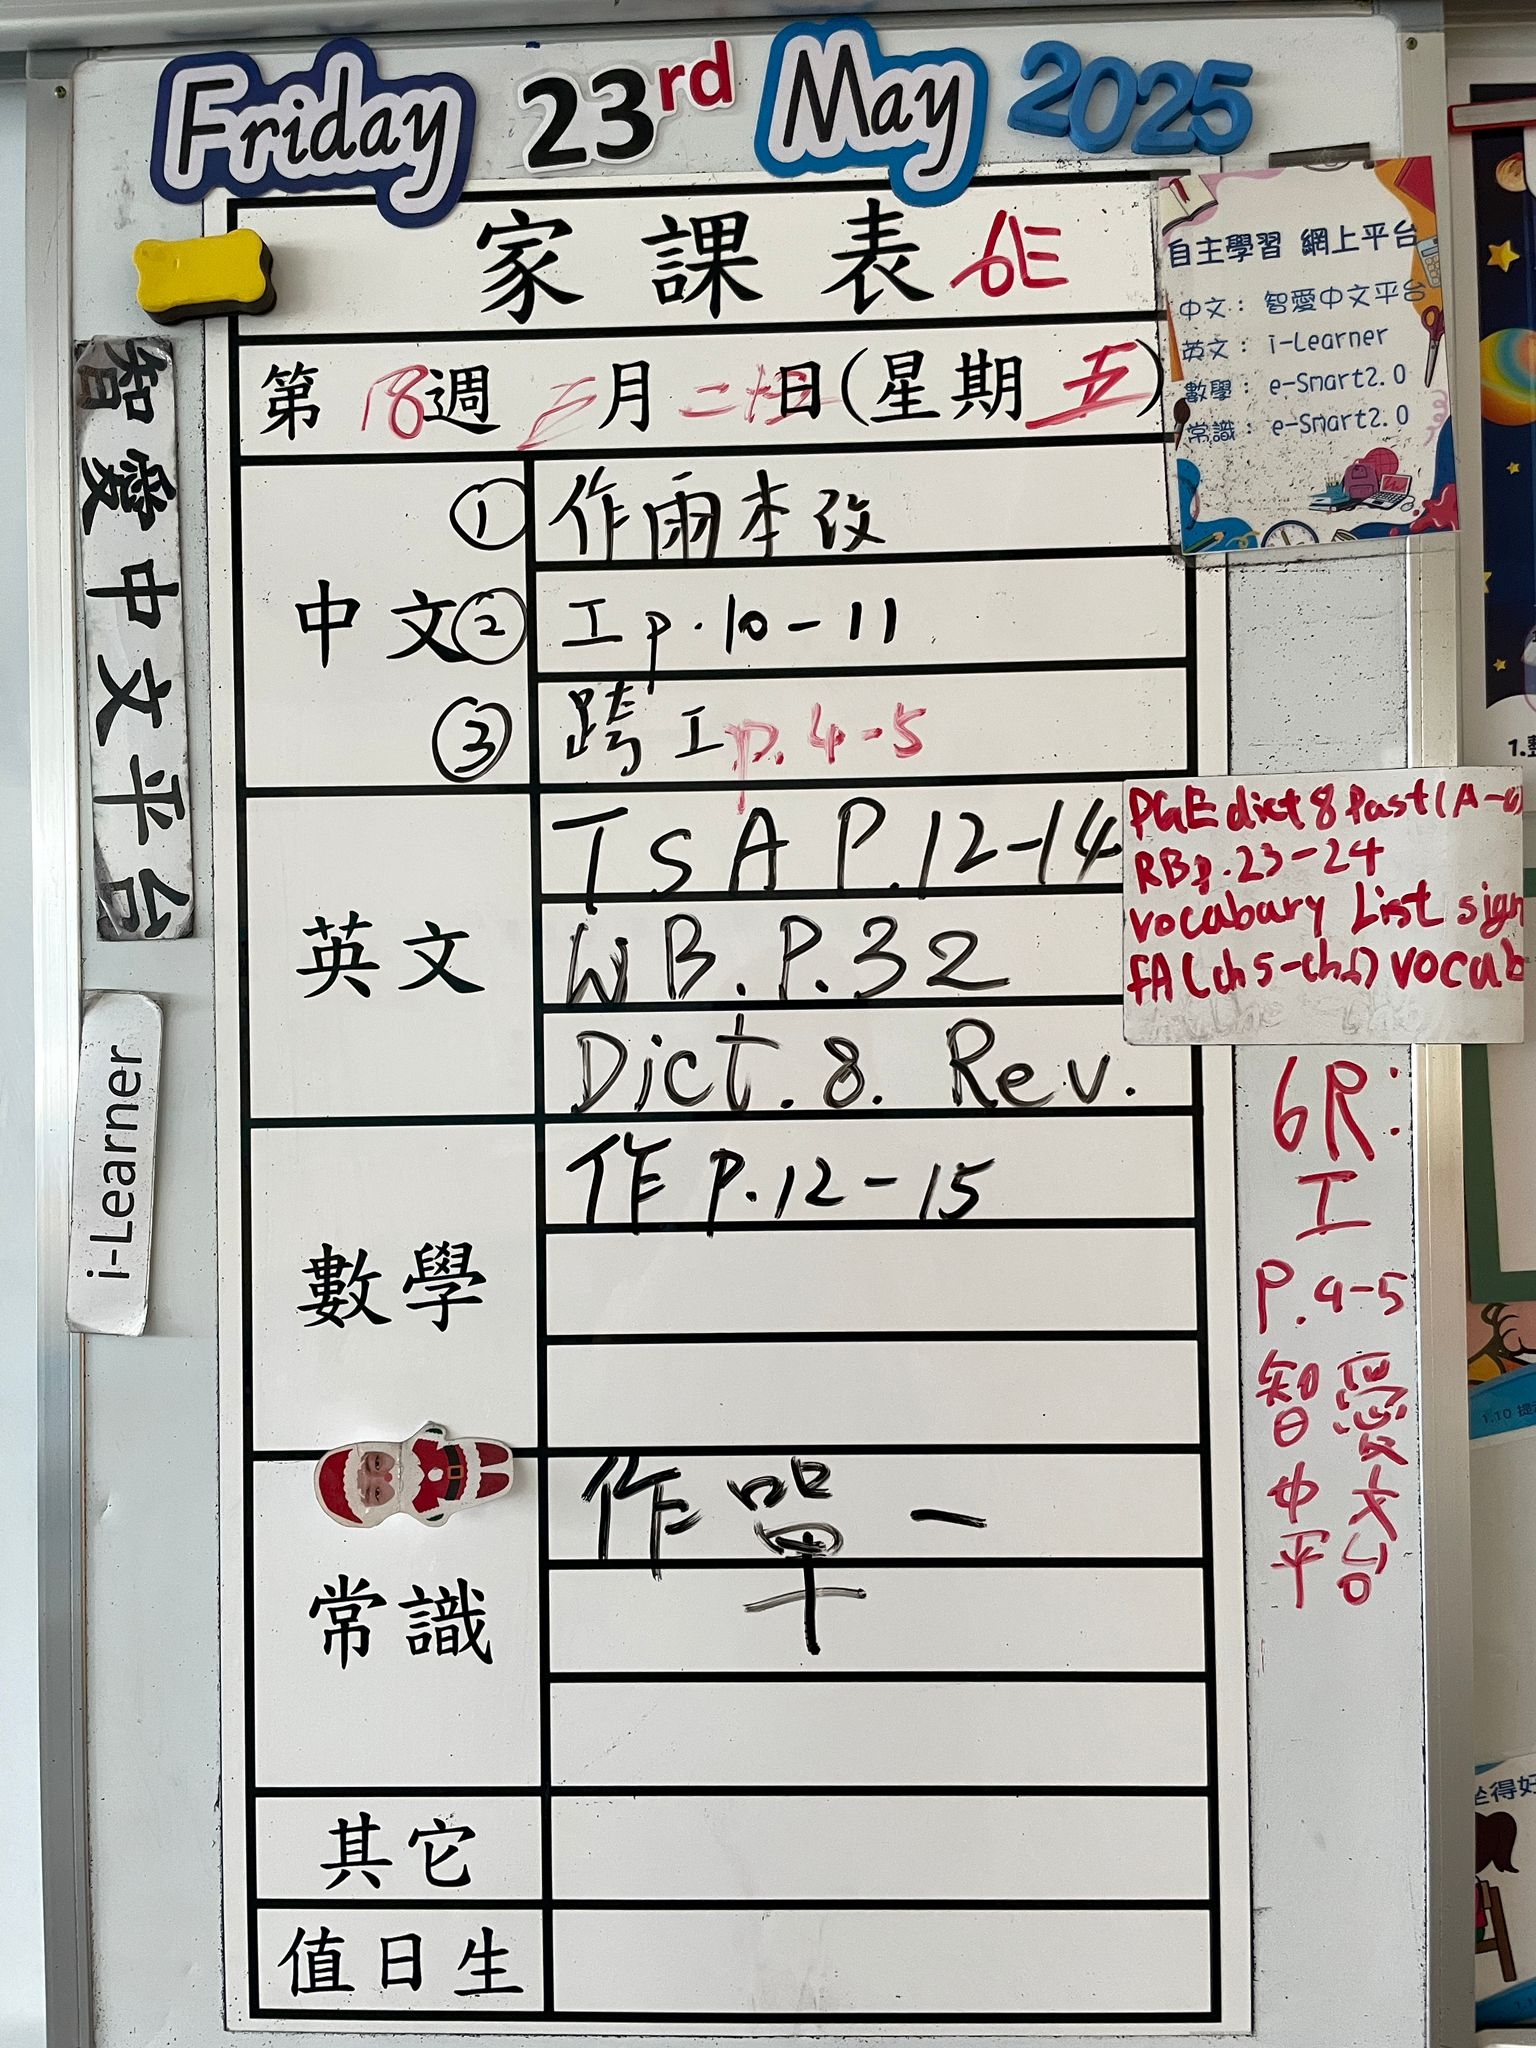 Friday 23rd May 2025
家課表 6E
第 18 週 五月 二十三日(星期 五)
自主學習 網上平台
中文： 智愛中文平台
英文： i-Learner
數學： e-Smart2.0
常識： e-Smart2.0
智愛中文平台
i-Learner
中文
① 作兩本改
② 工p.10-11
③ 跨工p.4-5
英文
TSA P.12-14
WB.P.32
Dict.8. Rev.
PGE dict 8 Past (A-
RB p.23-24
vocabary List sign
FA (ch5-ch6) vocab
數學
作 P.12-15
6R:
工
P.4-5
智愛
中文
平台
常識
作單一
其它
值日生